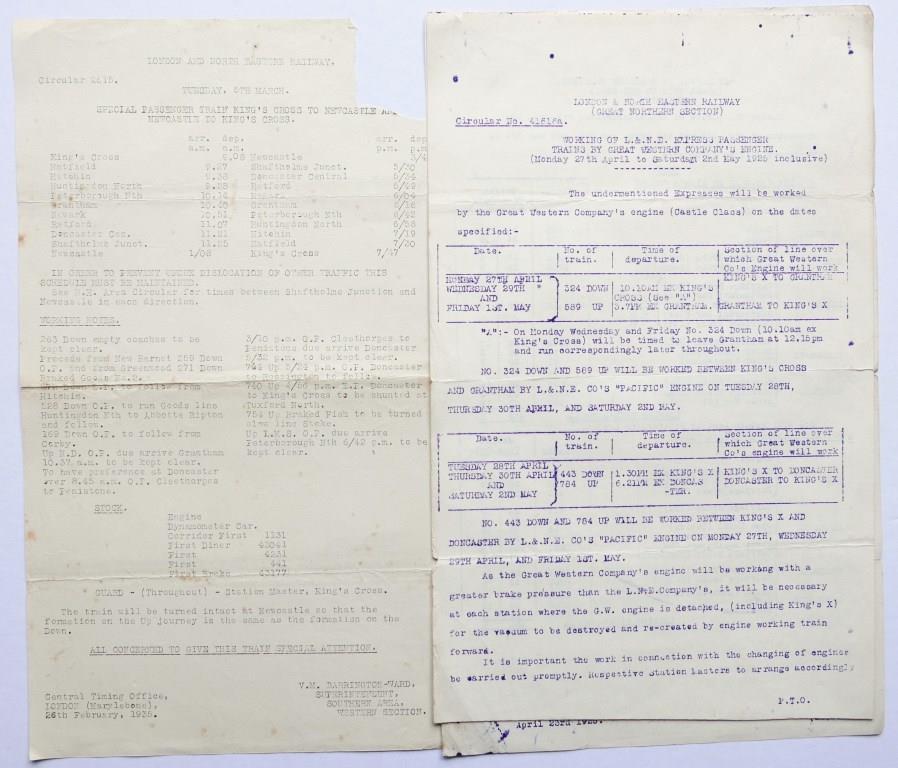 LONDON AND NORTH EASTERN RAILWAY.
Circular 2615.
TUESDAY, 5TH MARCH.
SPECIAL PASSENGER TRAIN KING'S CROSS TO NEWCASTLE AND
NEWCASTLE TO KING'S CROSS.
arr. dep. arr. dep
a.m. a.m. p.m. p.m
King's Cross 9.08 Newcastle 3/4
Hatfield 9.27 Shaftholme Junct. 5/30
Hitchin 9.38 Doncaster Central 5/34
Huntingdon North 9.58 Retford 5/49
Peterborough Nth 10.14 Newark 6/04
Grantham Grantham 6/16
Newark 10.51 Peterborough Nth 6/42
Retford 11.07 Huntingdon North 6/58
Doncaster Cen. 11.21 Hitchin 7/19
Shaftholme Junct. 11.25 Hatfield 7/30
Newcastle 1/08 King's Cross 7/47
IN ORDER TO PREVENT UNDUE DISLOCATION OF OTHER TRAFFIC THIS
SCHEDULE MUST BE MAINTAINED.
See N.E. Area Circular for times between Shaftholme Junction and
Newcastle in each direction.
WORKING NOTES.
263 Down empty coaches to be
kept clear.
Precede from New Barnet 259 Down
O.P. and from Greenwood 271 Down
Braked Goods No.2.
Down O.P. to follow from
Hitchin.
528 Down O.P. to run Goods line
Huntingdon Nth to Abbots Ripton
and follow.
169 Down O.P. to follow from
Corby.
Up N.D. O.P. due arrive Grantham
10.37 a.m. to be kept clear.
To have preference at Doncaster
over 8.45 a.m. O.P. Cleethorpes
to Penistone.
3/10 p.m. O.P. Cleethorpes to
Penistone due arrive Doncaster
5/32 p.m. to be kept clear.
p.m. O.P. Doncaster
to Rossington to follow.
740 Up Doncaster
to King's Cross to be shunted at
Tuxford North.
754 Up Braked Fish to be turned
slow line Stoke.
Up L.M.S. O.P. due arrive
Peterborough Nth 6/42 p.m. to be
kept clear.
STOCK.
Engine
Dynamometer Car.
Corridor First 1131
First Diner 43041
First 4231
First 441
First Brake 43177
GUARD - (Throughout) - Station Master, King's Cross.
The train will be turned intact at Newcastle so that the
formation on the Up journey is the same as the formation on the
Down.
ALL CONCERNED TO GIVE THIS TRAIN SPECIAL ATTENTION.
V.M. BARRINGTON-WARD,
SUPERINTENDENT,
SOUTHERN AREA,
WESTERN SECTION.
Central Timing Office,
LONDON (Marylebone),
26th February, 1935.
LONDON & NORTH EASTERN RAILWAY
(GREAT NORTHERN SECTION)
Circular No. 41616a.
WORKING OF L.& N.E. EXPRESS PASSENGER
TRAINS BY GREAT WESTERN COMPANY'S ENGINE.
(Monday 27th April to Saturday 2nd May 1925 inclusive)
The undermentioned Expresses will be worked
by the Great Western Company's engine (Castle Class) on the dates
specified:-
Date. No. of train. Time of departure. Section of line over which Great Western Co's Engine will work
MONDAY 27TH APRIL
WEDNESDAY 29TH "
AND
FRIDAY 1ST. MAY
324 DOWN 10.10AM EX KING'S CROSS (See "A") KING'S X TO GRANTM.
589 UP 3.7PM EX GRANTHAM. GRANTHAM TO KING'S X
"A":- On Monday Wednesday and Friday No. 324 Down (10.10am ex
King's Cross) will be timed to leave Grantham at 12.15pm
and run correspondingly later throughout.
NO. 324 DOWN AND 589 UP WILL BE WORKED BETWEEN KING'S CROSS
AND GRANTHAM BY L.& N.E. CO'S "PACIFIC" ENGINE ON TUESDAY 28TH,
THURSDAY 30TH APRIL, AND SATURDAY 2ND MAY.
Date. No. of train. Time of departure. Section of line over which Great Western Co's engine will work
TUESDAY 28TH APRIL
THURSDAY 30TH APRIL
AND
SATURDAY 2ND MAY
443 DOWN 1.30PM EX KING'S X KING'S X TO DONCASTER
784 UP 6.21PM EX DONCAS-TER. DONCASTER TO KING'S X
NO. 443 DOWN AND 784 UP WILL BE WORKED BETWEEN KING'S X AND
DONCASTER BY L.& N.E. CO'S "PACIFIC" ENGINE ON MONDAY 27TH, WEDNESDAY
29TH APRIL, AND FRIDAY 1ST. MAY.
As the Great Western Company's engine will be working with a
greater brake pressure than the L.N.E.Company's, it will be necessary
at each station where the G.W. engine is detached, (including King's X)
for the vacuum to be destroyed and re-created by engine working train
forward.
It is important the work in connection with the changing of engines
be carried out promptly. Respective Station Masters to arrange accordingly
P.T.O.
April 23rd 1925.